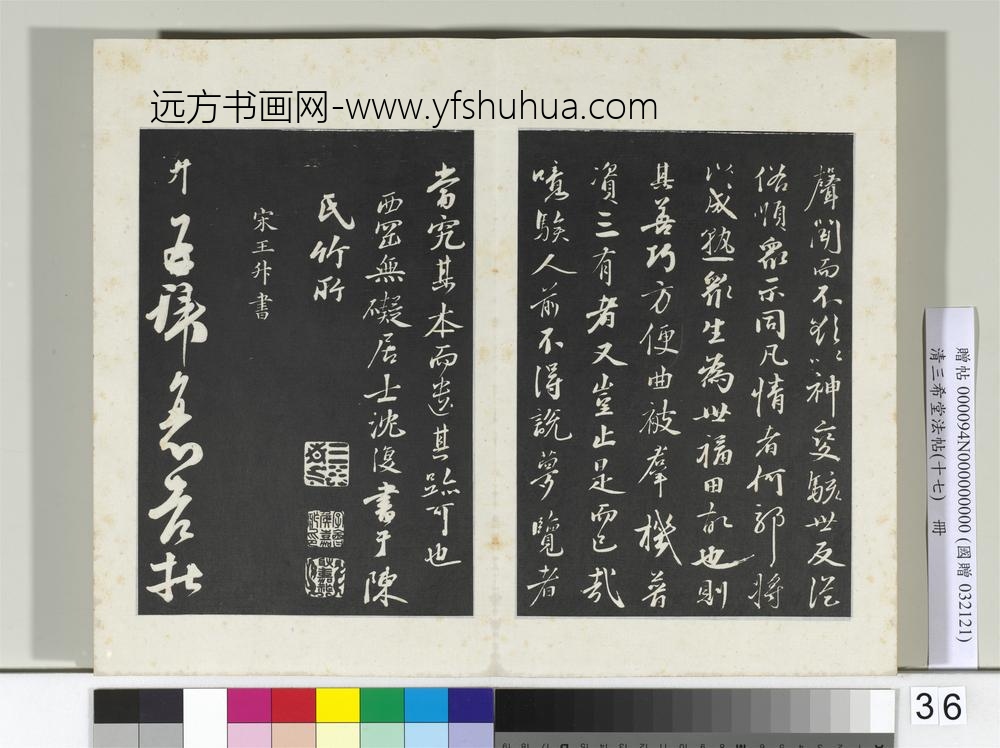 远方书画网-www.yfshuhua.com
聲聞而不
神變駭世反從
俗順眾示同凡情者何耶將
以成熟眾生為世福田故也則
其善巧方便曲被羣機普
資三有者又豈止是而已哉
噫騃人前不得說夢覽者
當究其本而遺其跡可也
西罡無礙居士沈復書于陳
氏竹所
宋王升書
升
贈帖 000094N000000000 (國贈 032121)
清三希堂法帖(十七) 冊
36